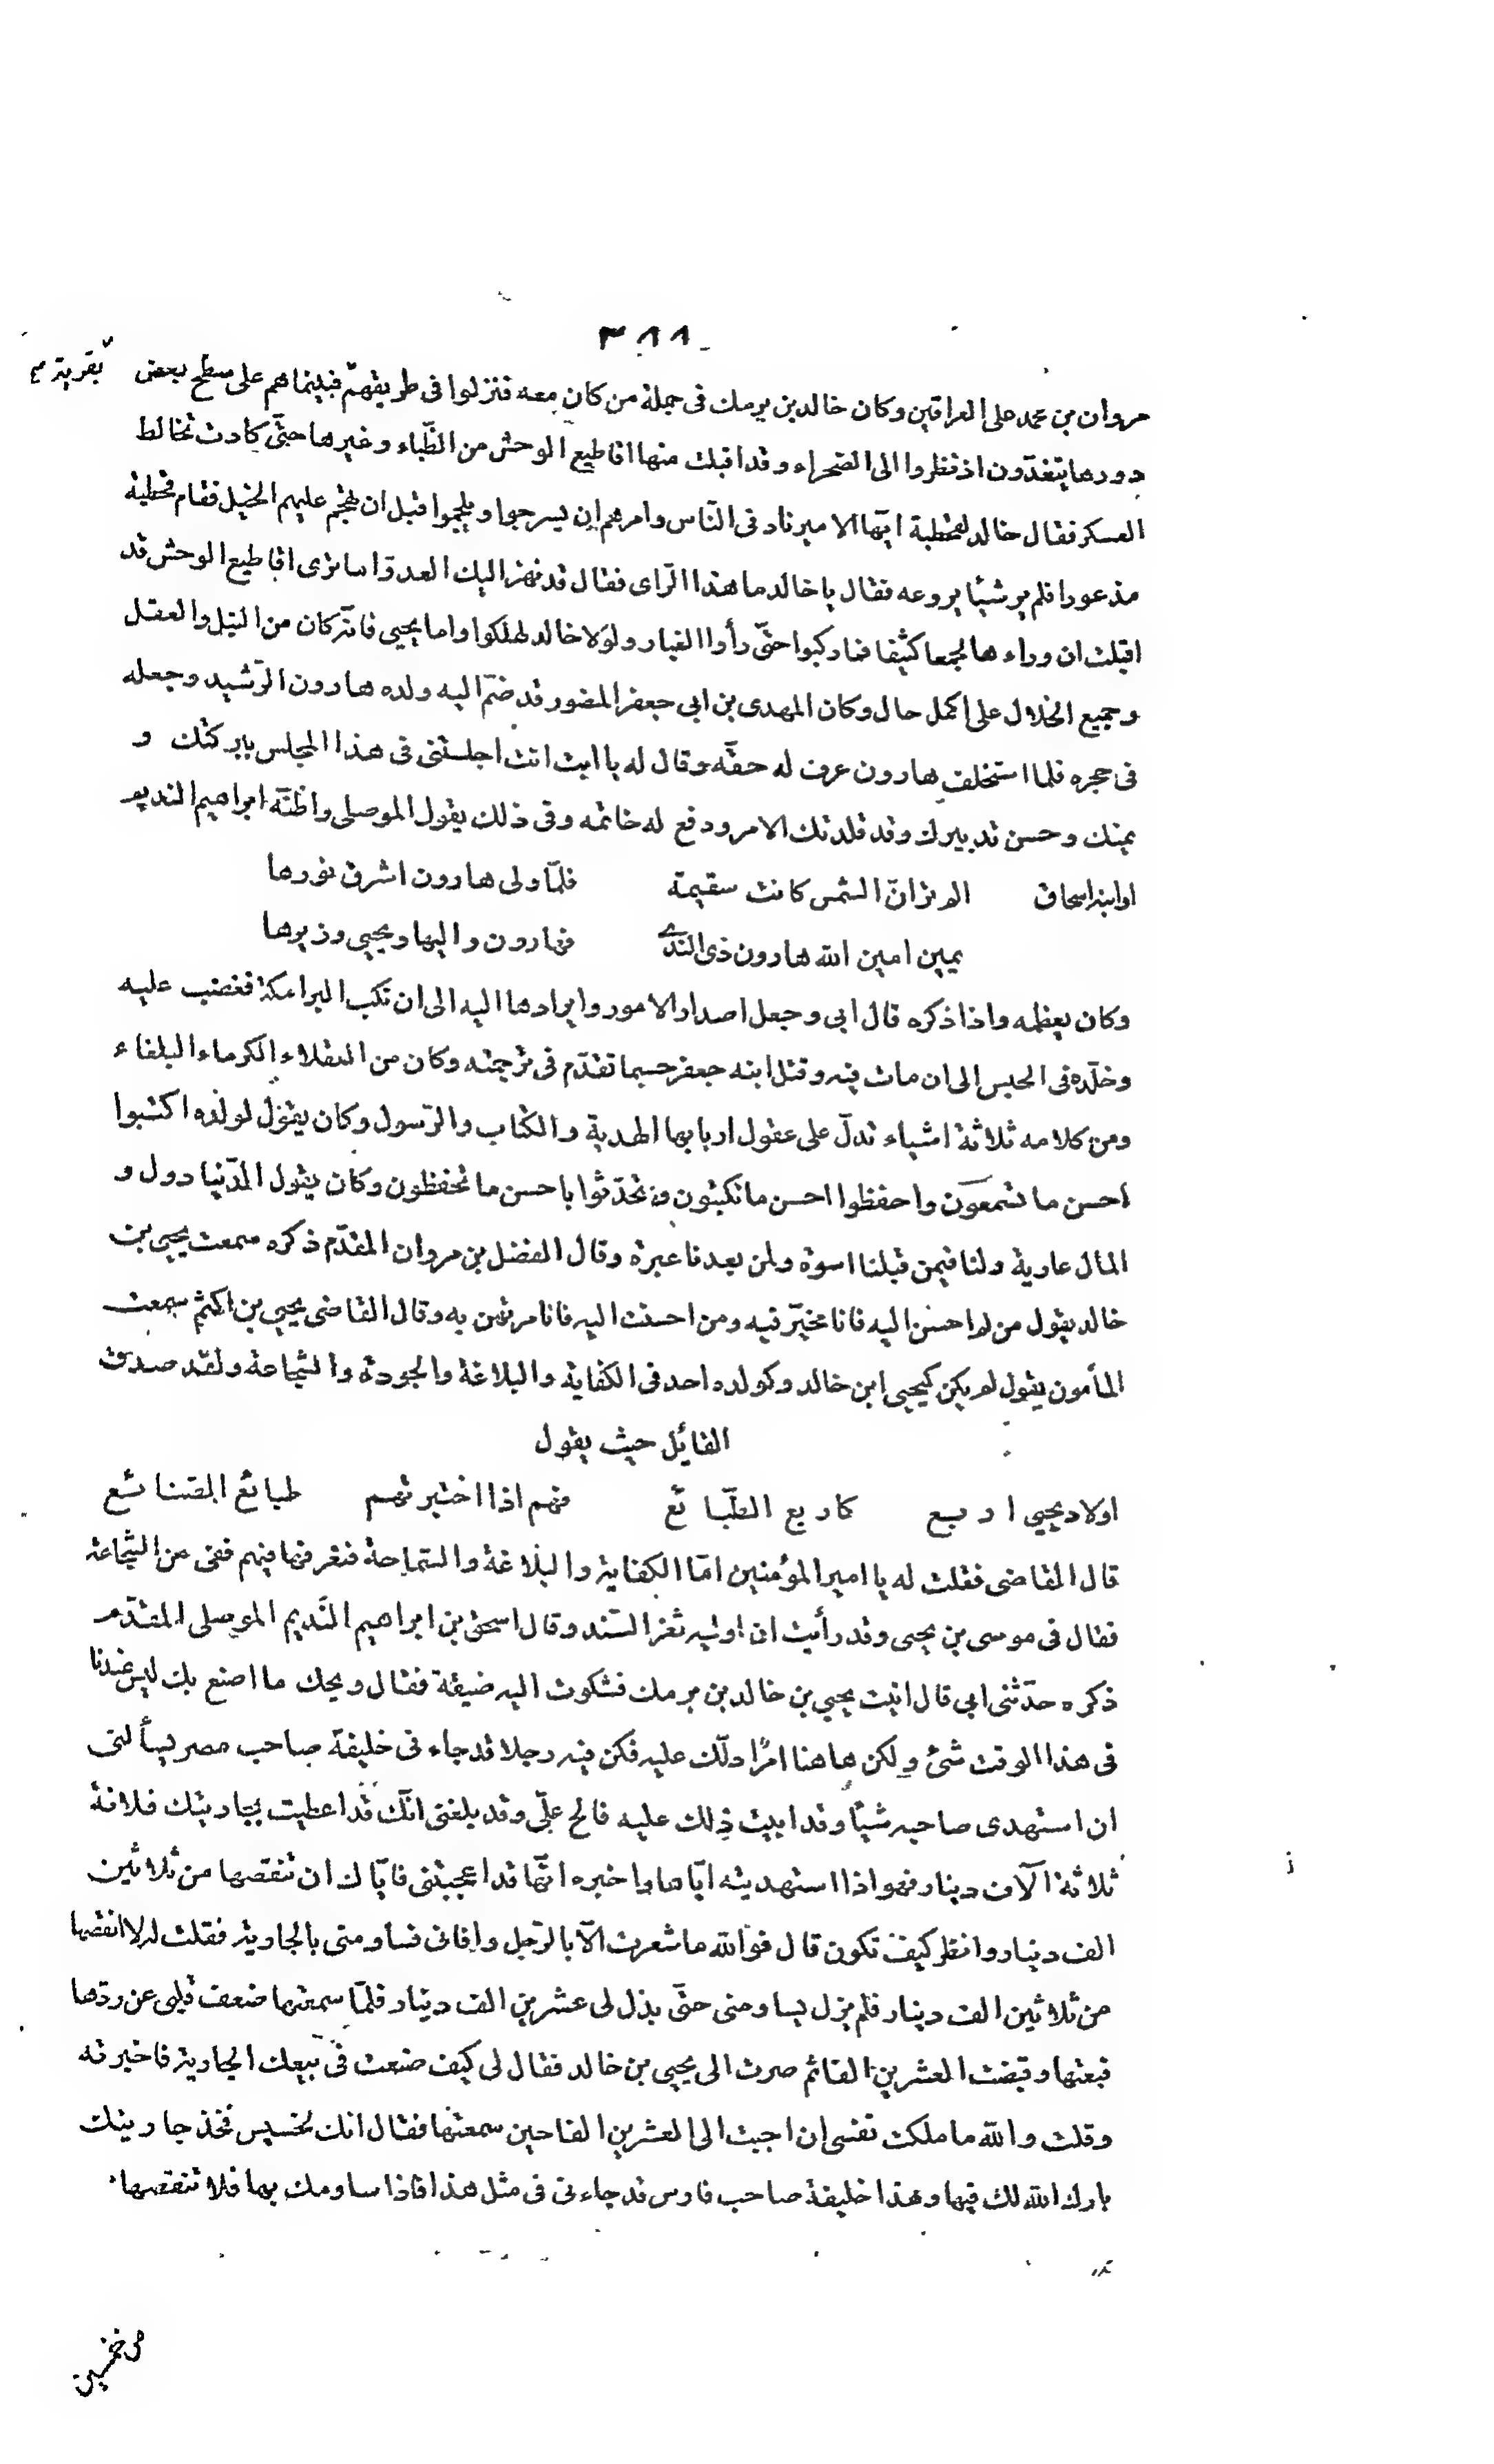 ٣٨٨
مروان بن محمد على العراقين وكان خالد بن برمك فى جملة من كان معه فنزلوا فى طريقهم فبينما هم على سطح بعض
بقرية
دورها يتغدّون اذ نظروا الى الصحراء وقد اقبلت منها اقاطيع الوحش من الظّباء وغيرها حتّى كادت تخالط
العسكر فقال خالد لقحطبة ايّها الامير ناد فى النّاس وامرهم ان يسرجوا ويلجموا قبل ان تهجم عليهم الخيل فقام قحطبة
مذعورا فلم ير شيئا يروعه فقال يا خالد ما هذا الرّاى فقال قد نهز اليك العدوّ اما ترى اقاطيع الوحش قد
اقبلت ان وراءها لجمعا كثيفا فما ركبوا حتّى رأوا الغبار ولولا خالد لهلكوا واما يحيى فانّه كان من النبل والعقل
وجميع الخلال على اكمل حال وكان المهدى بن ابى جعفر المنصور قد ضمّ اليه ولده هارون الرّشيد وجعله
فى حجره فلما استخلف هارون عرف له حقّه وقال له يا ابت انت اجلستنى فى هذا المجلس ببركتك و
يمنك وحسن تدبيرك وقد قلدتك الامر ودفع له خاتمه وفى ذلك يقول الموصلى واظنّه ابراهيم النديم
او ابنه اسحاق الم تر انّ الشمس كانت سقيمة فلمّا ولى هارون اشرق نورها
بيمين امين الله هارون ذى النّدى فهارون واليها ويحيى وزيرها
وكان يعظمه واذا ذكره قال ابى وجعل اصدار الامور وايرادها اليه الى ان نكب البرامكة فغضب عليه
وخلّده فى الحبس الى ان مات فيه وقتل ابنه جعفر حسبما تقدّم فى ترجمته وكان من العقلاء الكرماء البلغاء
ومن كلامه ثلاثة اشياء تدلّ على عقول اربابها الهدية والكتاب والرّسول وكان يقول لولده اكتبوا
احسن ما تسمعون واحفظوا احسن ما تكتبون وتحدّثوا باحسن ما تحفظون وكان يقول الدّنيا دول و
المال عارية ولنا فيمن قبلنا اسوة ولمن بعدنا عبرة وقال الفضل بن مروان المقدّم ذكره سمعت يحيى بن
خالد يقول من لم احسن اليه فانا مخيّر فيه ومن احسنت اليه فانا مرتهن به وقال القاضى يحيى بن اكثم سمعت
المأمون يقول لم يكن كيحيى ابن خالد وكولده احد فى الكفاية والبلاغة والجودة والشجاعة ولقد صدق
القائل حيث يقول
اولاد يحيى اربع كاربع الطّبائع فهم اذا اختبرتهم طبائع الصّنائع
قال القاضى فقلت له يا امير المؤمنين امّا الكفاية والبلاغة والسّماحة فنعرفها فيهم ففى من الشّجاعة
فقال فى موسى بن يحيى وقد رأيت ان اوليه ثغر السّند وقال اسحق بن ابراهيم النّديم الموصلى المقدّم
ذكره حدّثنى ابى قال اتيت يحيى بن خالد بن برمك فشكوت اليه ضيقة فقال ويحك ما اصنع بك ليس عندنا
فى هذا الوقت شئ ولكن هاهنا امرًا دلّك عليه فكن فيه رجلا قد جاء نى خليفة صاحب مصر يسألنى
ان استهدى صاحبه شيئا وقد ابيت ذلك عليه فالح علىّ وقد بلغنى انّك قد اعطيت بجاريتك فلانة
ثلاثة آلاف دينار فهو اذا استهديته ايّاها واخبره انّها قد اعجبتنى فايّاك ان تنقصها من ثلاثين
الف دينار وانظر كيف تكون قال فوالله ما شعرت الّا بالرّجل وافانى فساومنى بالجارية فقلت له لا انقصها
من ثلاثين الف دينار فلم يزل يساومنى حتّى بذل لى عشرين الف دينار فلمّا سمعتها ضعف قلبى عن ردّها
فبعتها وقبضت العشرين الفا ثم صرت الى يحيى بن خالد فقال لى كيف صنعت فى بيعك الجارية فاخبرته
وقلت والله ما ملكت نفسى ان اجبت الى العشرين الفا حين سمعتها فقال انك لخسيس فخذ جاريتك
بارك الله لك فيها وهذا خليفة صاحب فارس قد جاءنى فى مثل هذا فاذا ساومك بها فلا تنقصها
من خمسين